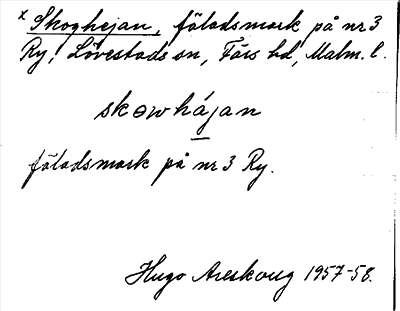 x Skoghejan, fäladsmark på nr 3
Ry, Lövestads sn, Färs hd, Malm. l.
skɵwhájan
fäladsmark på nr 3 Ry.
Hugo Areskoug 1957-58.